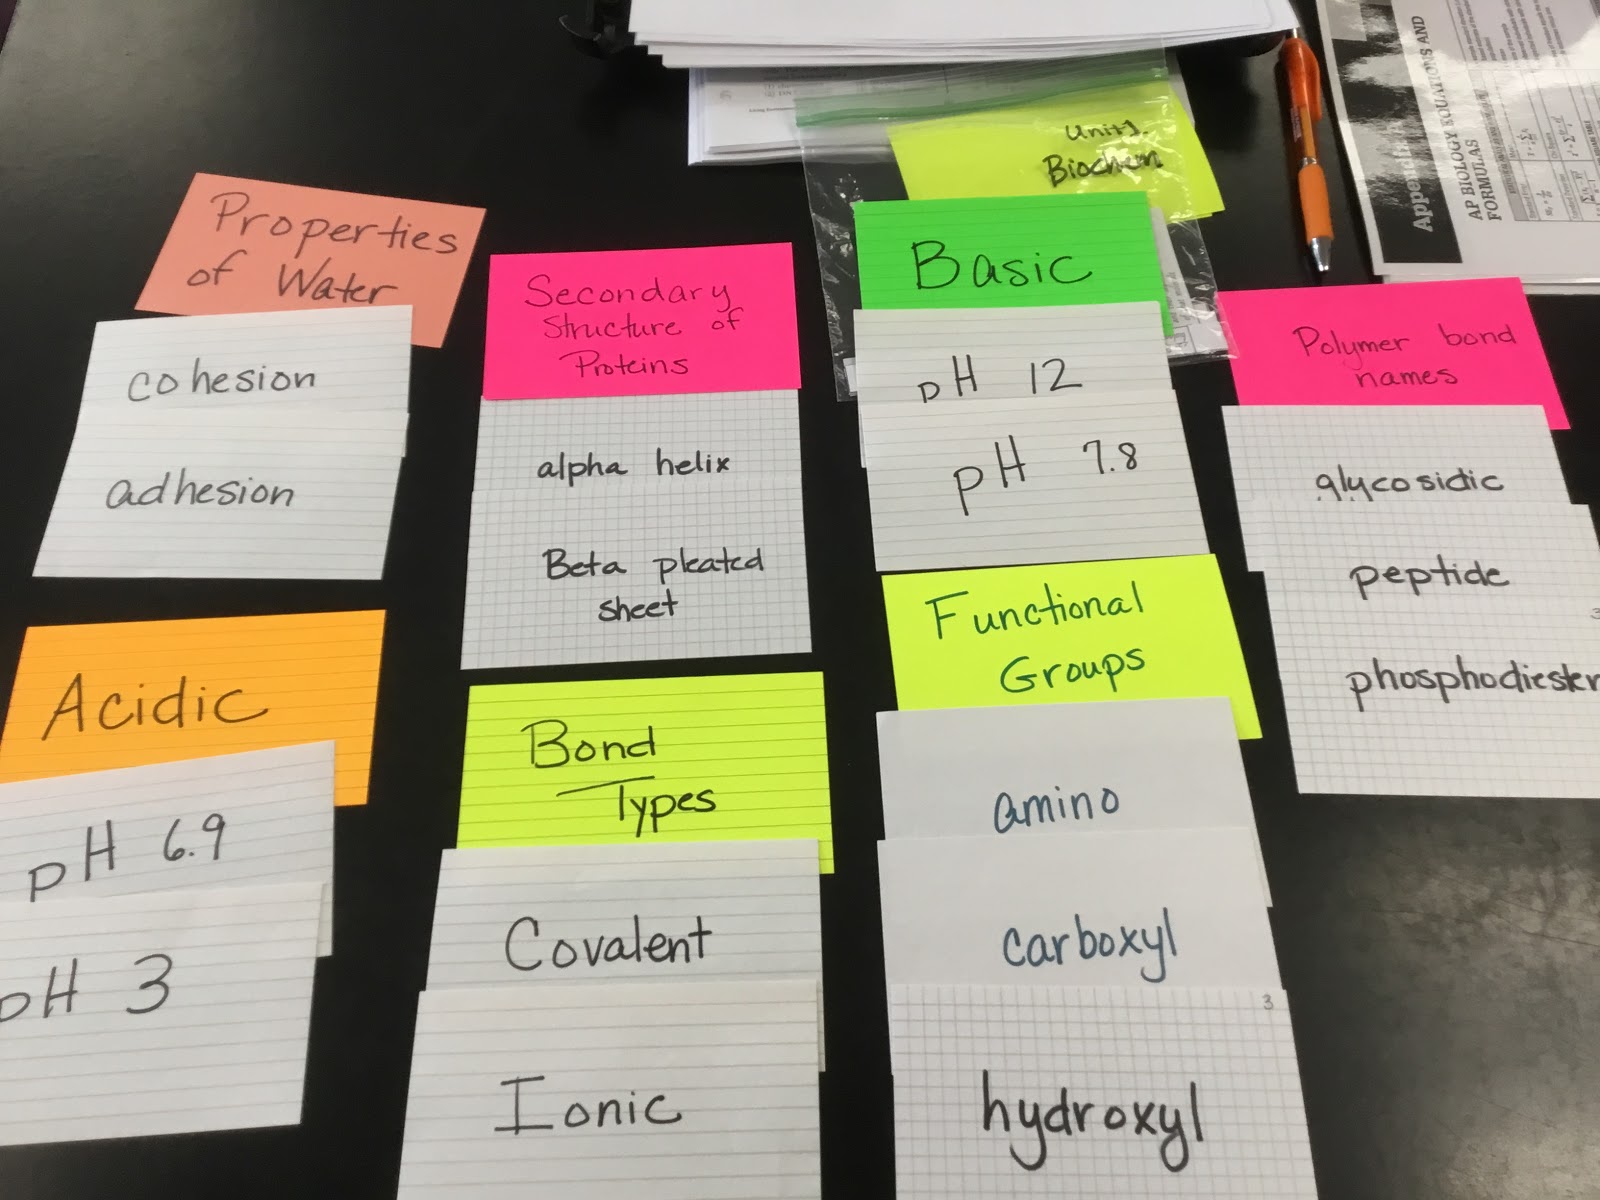 Unit 1.
Biochem
Appendix
AP BIOLOGY EQUATIONS AND
FORMULAS
Properties
of Water
cohesion
adhesion
Acidic
pH 6.9
pH 3
Secondary
Structure of
Proteins
alpha helix
Beta pleated
sheet
Bond
Types
Covalent
Ionic
Basic
pH 12
pH 7.8
Functional
Groups
amino
carboxyl
3
hydroxyl
Polymer bond
names
glycosidic
peptide
3
phosphodiester